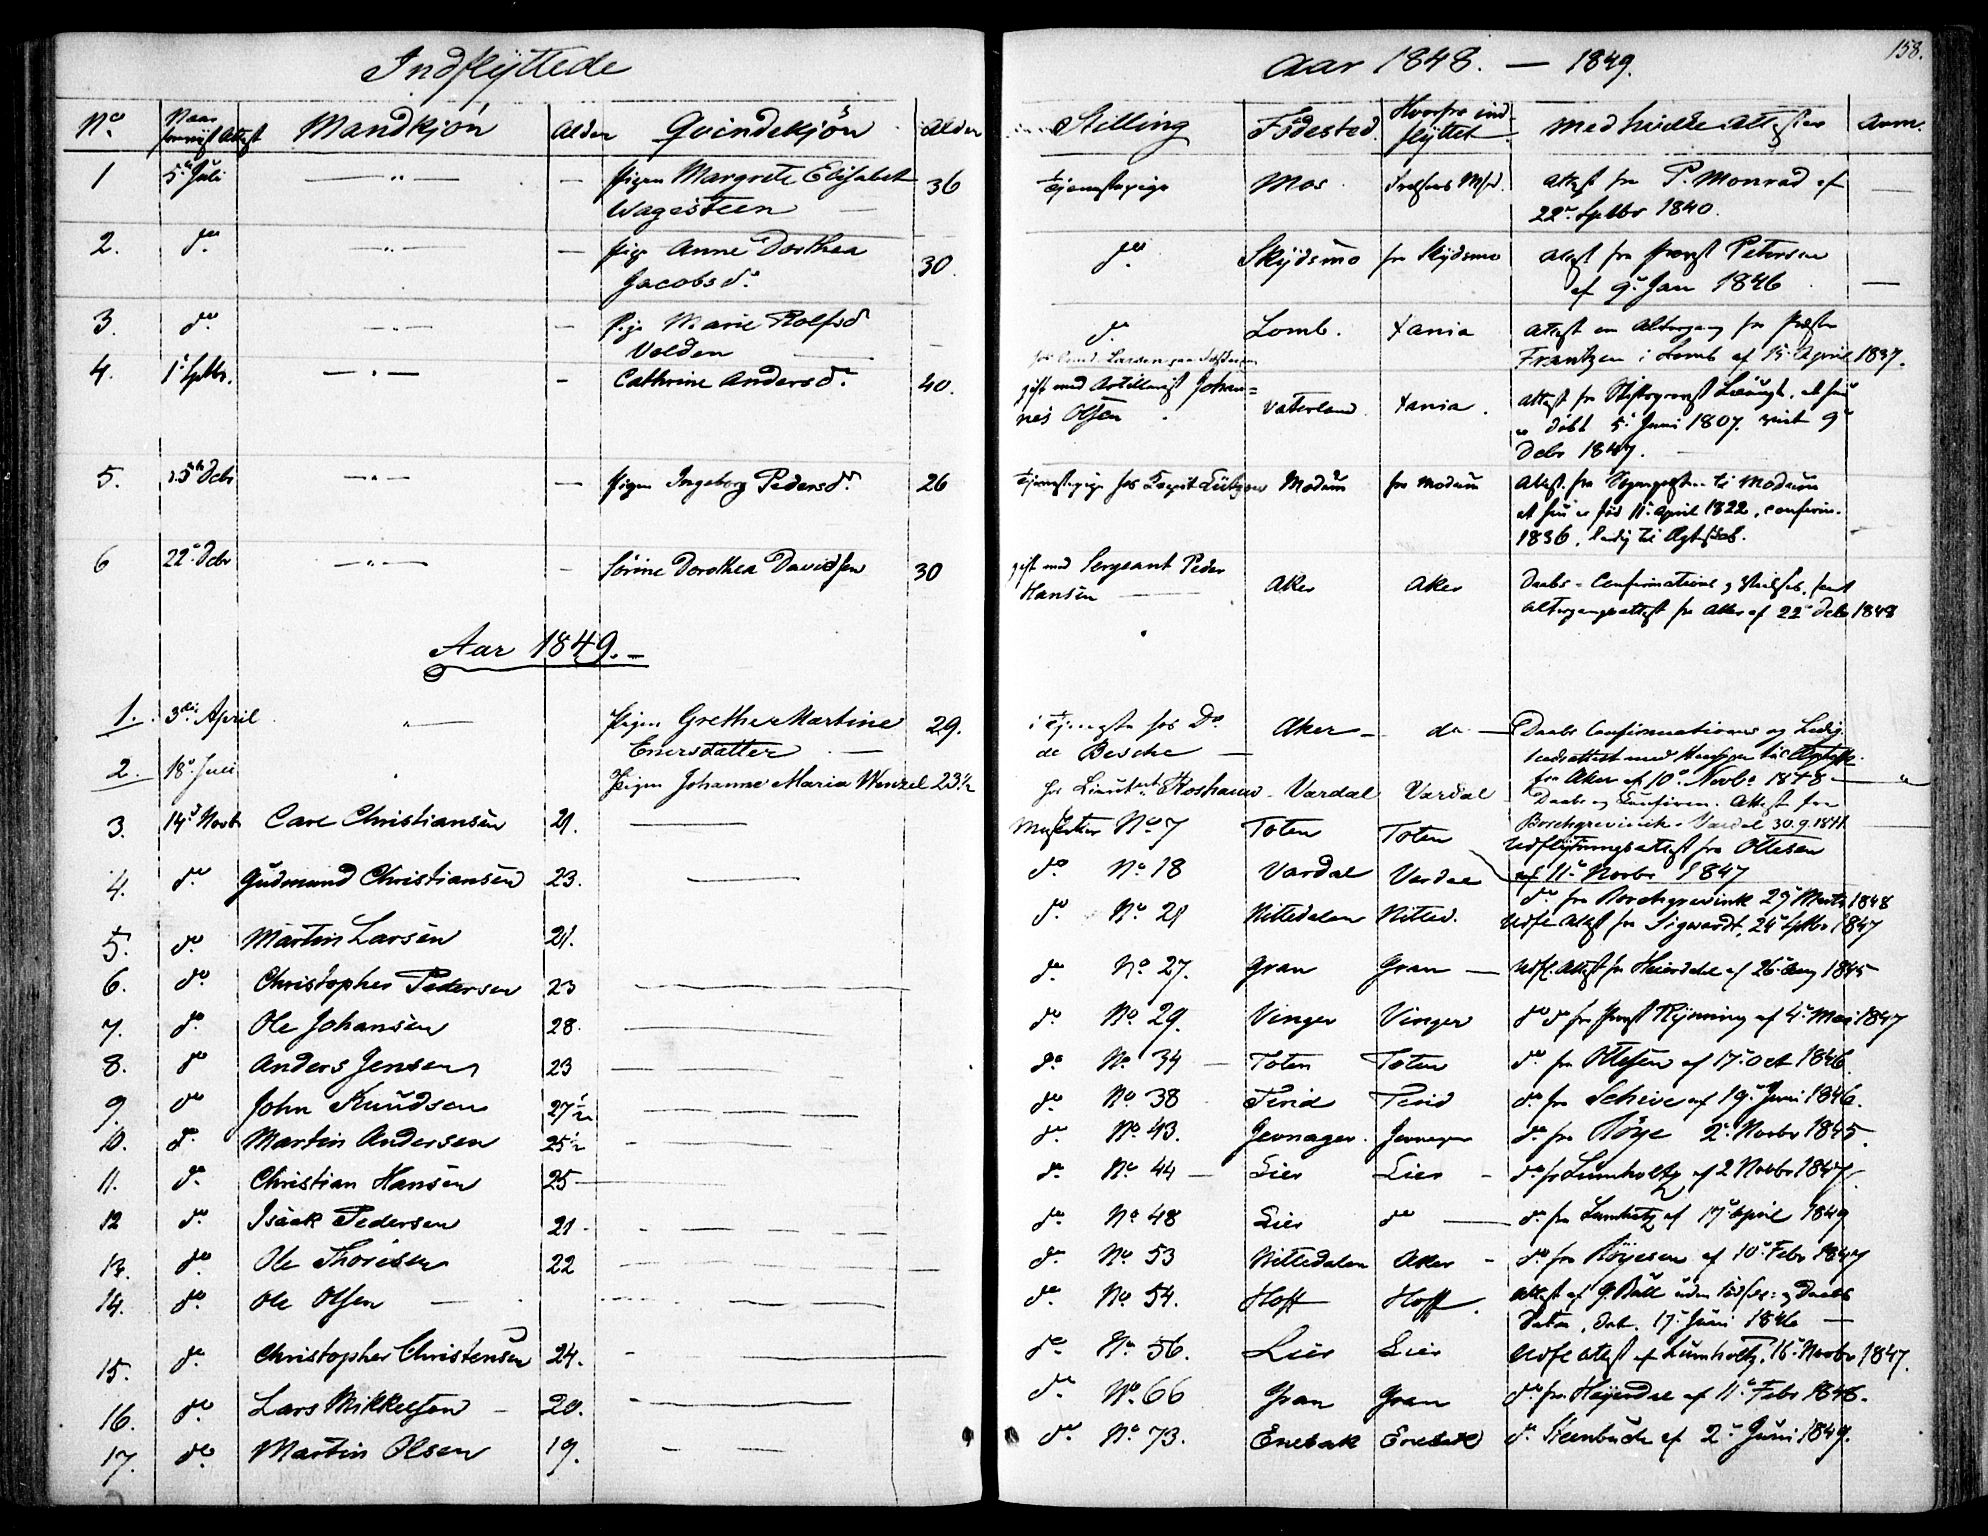 Indflyttede
Aar 1848. — 1849.
158.
No. Naar Attest Mandkjön Alder Qvindekjön Alder Stilling Födested. Hvorfra indflyttet medhavde Attester Anm.
1 5 Juli — " — — Pigen Margrete Elisabet Wagesteen — 36 Tjenestepige Mos Attest fra P. Monrad af 22 Septbr 1840. —
2. do — " — — Pige Anne Dorthea Jacobsd. 30. do. Skydsmo fra Skydsmo Attest fra Provst Petersen af 9. Jan 1846 —
3. do — " — — Pige Marie Rolfsd Volden — do Lomb. Xania Attest om Altergang fra Præsten Frantzen i Lomb af 15. April 1837.
4. 1 Septbr. — " — - Cathrine Andersd. 40. gift med Artillerist Johannes Olsen Vaterland Xania. Attest fra Stiftsprovst at hun er döbt 5 Juni 1807. 9 Debr 1847.
5. 15 Debr — " — — Pigen Ingeborg Pedersd. 26 Tjenestepige hos Capit Lützow Modum fra Modum Attest. fra til Modum at hun er föd 11. April 1822, confirm. 1836, ledig til Ægteskab.
6 22 Debr — " — - Sörine Dorothea Davidsen 30 gift med Sergeant Peder Hansen — Aker Aker Daabs - Confirmations og samt Altergangsattest fra Aker af 22 Debr 1848
Aar 1849. —
1. 3die April " — Pigen Grethe Martine Enersdatter — 29. i Tjeneste hos Dr de Besche — Aker — do — Daabs Confirmations og Ledighedsattest med til Ægtesk. fra Aker af 10 Novbr 1848 — "
2. 18 Juli Pigen Johanne Maria Wenzel 23½ hos Lieutent — Vardal Vardal Daabs og Confirm. Attest fra Borchgrevink. Vardal 30.9.1841
3. 14 Novbr Carl Christiansen 21. — No 7 Toten Toten Udflytningsattest fra Ottesen af 11 Novbr 1847
4. do Gudmund Christiansen 23. — do No 18 Vardal Vardal do fra Borchgrevink 29 Marts 1848
5. do Martin Larsen 21. do No 21 Nittedalen Nitted. Udfl Attest fra Sigwardt, 24 Septbr 1847
6. do Christopher Pedersen 23 — do No 27. Gran Gran — Udfl. Attest fra Heierdahl af 26. Aug 1845
7. do Ole Johansen 28. — do No 29. Vinger Vinger do do fra Provst Rynning af 4. Mai 1847
8. do Anders Jensen 23 — do No 34 — Toten Toten do fra Ottesen af 17. Oct 1846.
9. do John Knudsen 27½ — do No 38 do fra Schive af 19. Juni 1846.
10. do Martin Andersen 25½ — do No 43. Jevnager. Jevnager do fra Röye 2. Novbr 1845.
11. do Christian Hansen 25 — do No 44 — Lier Lier - do fr Lumholtz af 2 Novbr 1847.
12 do Isaak Pedersen 21. — do No 48 Lier do — do fra Lumholtz af 17 April 1849
13. do Ole Thoresen 22 — do No 53 Nittedalen Aker - do fra Röyesen af 10. Febr 1847
14. do Ole Olsen — do No 54. Hoff Hoff. Attest af G. Ball uden og Daabs Datum, dat. 17. Juni 1846 —
15. do Christopher Christensen 24. — do No 56. Lier Lier Udfl Attest af Lumholtz, 16. Novbr 1847.
16. do Lars Mikkelsen — 20. — do No. 66 Gran Gran do fra Heyerdal af 11. Febr 1848.
17. do Martin Olsen 19. — do No. 73. Enebak Enebak do Steenbuch af 2. Juni 1849.